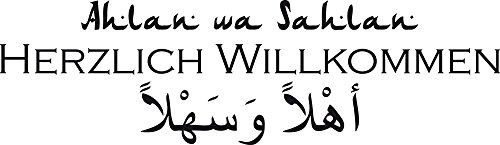 Ahlan wa Sahlan
HERZLICH WILLKOMMEN
أهْلاً وَسَهْلاً